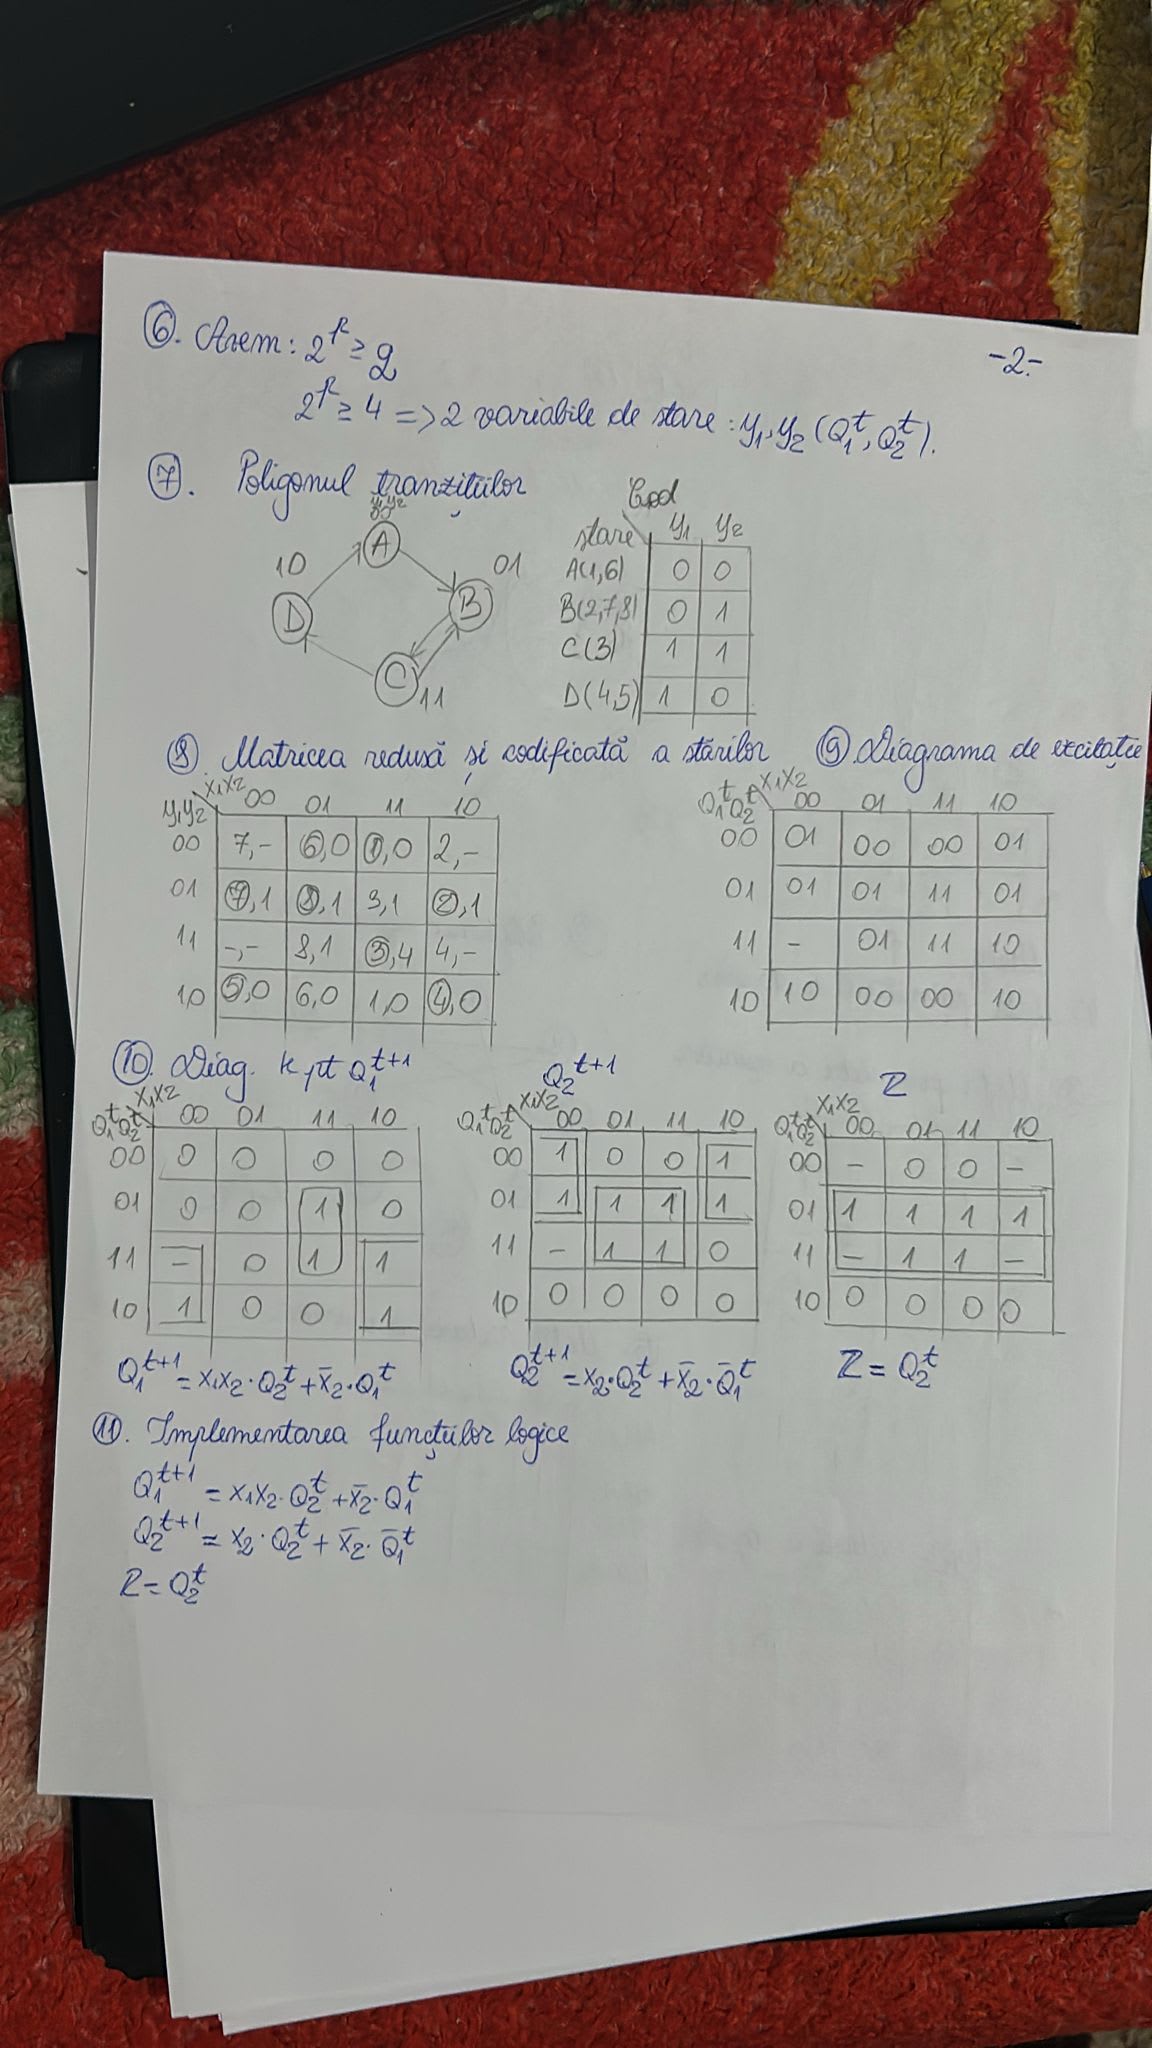 -2-
6. Avem: 2^p ≥ q
2^p ≥ 4 => 2 variabile de stare: y1, y2 (Q1^t, Q2^t).
7. Poligonul tranzițiilor
y1y2
A
10 01
D B
C 11
Cod
stare y1 y2
A(1,6) 0 0
B(2,7,8) 0 1
C(3) 1 1
D(4,5) 1 0
8. Matricea redusă și codificată a stărilor
y1y2 x1x2 00 01 11 10
00 7,- ⑥,0 ①,0 2,-
01 ⑦,1 ⑧,1 3,1 ②,1
11 -,- 8,1 ③,4 4,-
1,0 ⑤,0 6,0 1,0 ④,0
9. Diagrama de excitație
Q1^tQ2^t x1x2 00 01 11 10
00 01 00 00 01
01 01 01 11 01
11 - 01 11 10
10 10 00 00 10
10. Diag. k, pt Q1^t+1
Q1^tQ2^t x1x2 00 01 11 10
00 0 0 0 0
01 0 0 1 0
11 - 0 1 1
10 1 0 0 1
Q1^t+1 = x1x2·Q2^t + x̄2·Q1^t
Q2^t+1
Q1^tQ2^t x1x2 00 01 11 10
00 1 0 0 1
01 1 1 1 1
11 - 1 1 0
10 0 0 0 0
Q2^t+1 = x2·Q2^t + x̄2·Q̄1^t
Z
Q1^tQ2^t x1x2 00 01 11 10
00 - 0 0 -
01 1 1 1 1
11 - 1 1 -
10 0 0 0 0
Z = Q2^t
11. Implementarea funcțiilor logice
Q1^t+1 = x1x2·Q2^t + x̄2·Q1^t
Q2^t+1 = x2·Q2^t + x̄2·Q̄1^t
Z = Q2^t